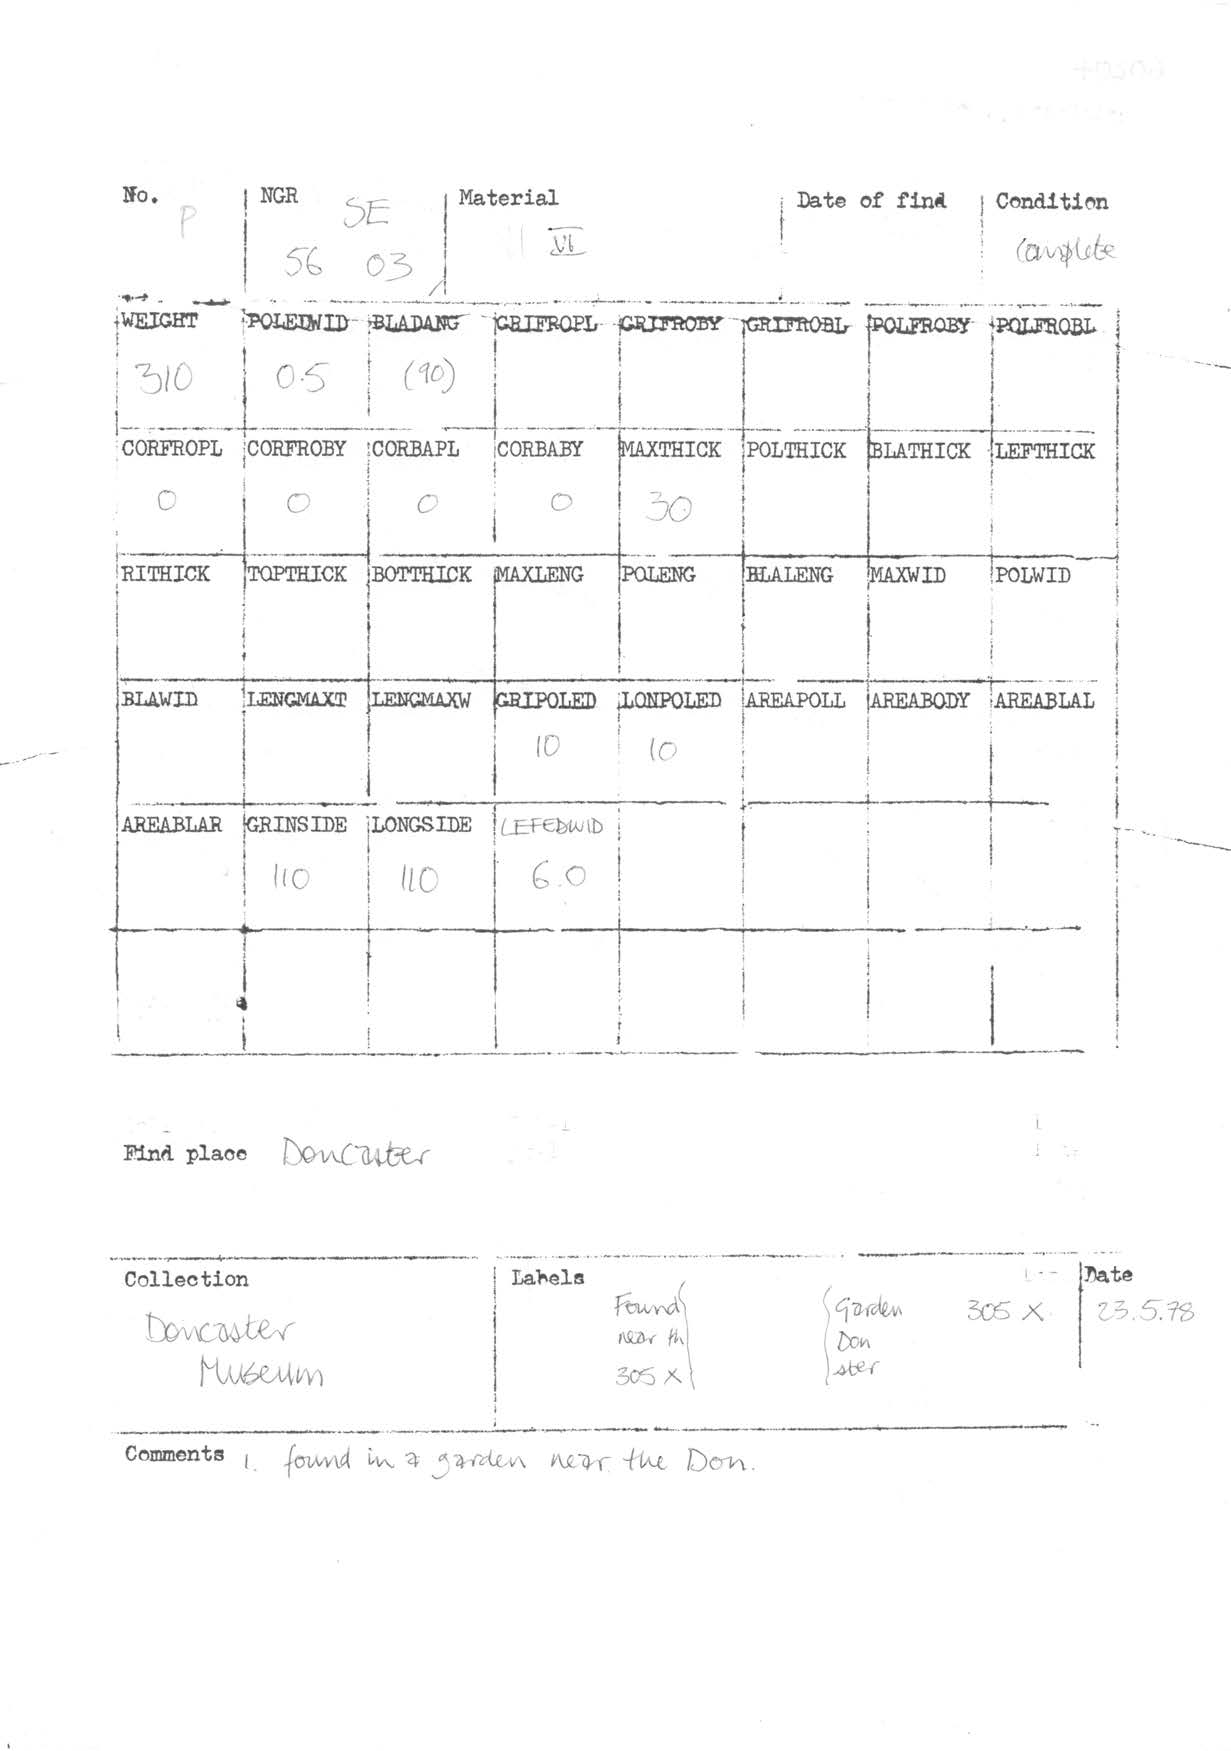 No. NGR Material Date of find Condition
P SE VI Complete
56 03
WEIGHT POLEDWID BLADANG GRIFROPL GRIFROBY GRIFROBL POLFROBY POLFROBL
310 0.5 (90)
CORFROPL CORFROBY CORBAPL CORBABY MAXTHICK POLTHICK BLATHICK LEFTHICK
0 0 0 0 30
RITHICK TOPTHICK BOTTHICK MAXLENG POLENG BLALENG MAXWID POLWID
BLAWID LENGMAXT LENGMAXW GRIPOLED LONPOLED AREAPOLL AREABODY AREABLAL
10 10
AREABLAR GRINSIDE LONGSIDE LEFEDWID
110 110 6.0
Find place Doncaster
Collection Labels Date
Doncaster Found Garden 305 X. 23.5.78
Museum near th Don
305 X ster
Comments 1. found in a garden near the Don.